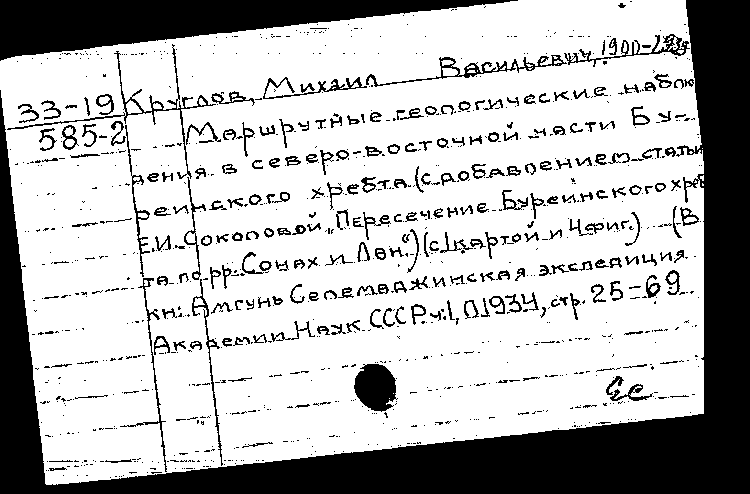 33-19
585-2
Круглов, Михаил Васильевич, 1900-
Маршрутные геологические наблю
дения в северо-восточной части Бу-
реинского хребта (с добавлением статьи
Е.И. Соколовой „Пересечение Буреинского хреб
та по рр. Сонах и Лан.“) (с 1 картой и 4 фиг.) (В
кн: Амгунь Селемджинская экспедиция
Академии Наук СССР. ч. I, Л 1934, стр. 25-69